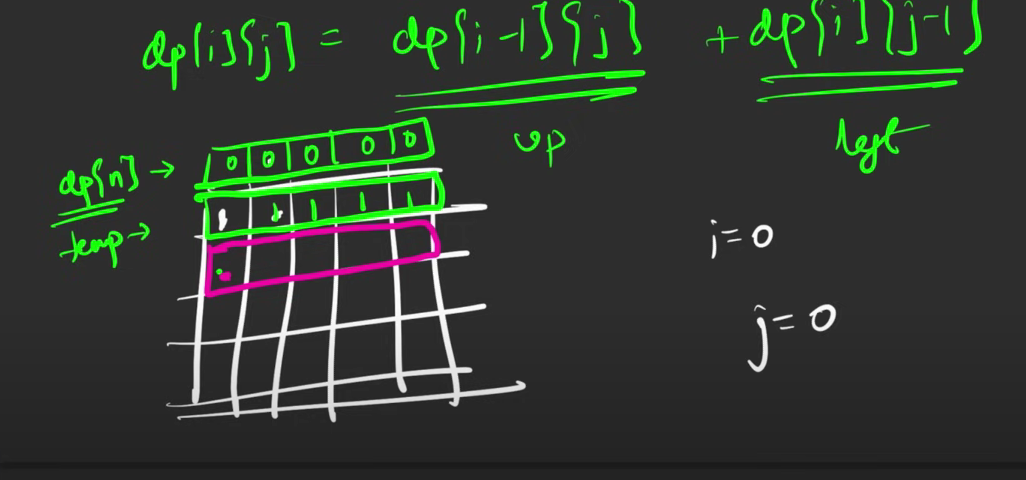 dp[i][j] = dp[i-1][j] + dp[i][j-1]
up left
dp[n] → 0 0 0 0 0
temp → 1 1 1 1 1
i = 0
j = 0